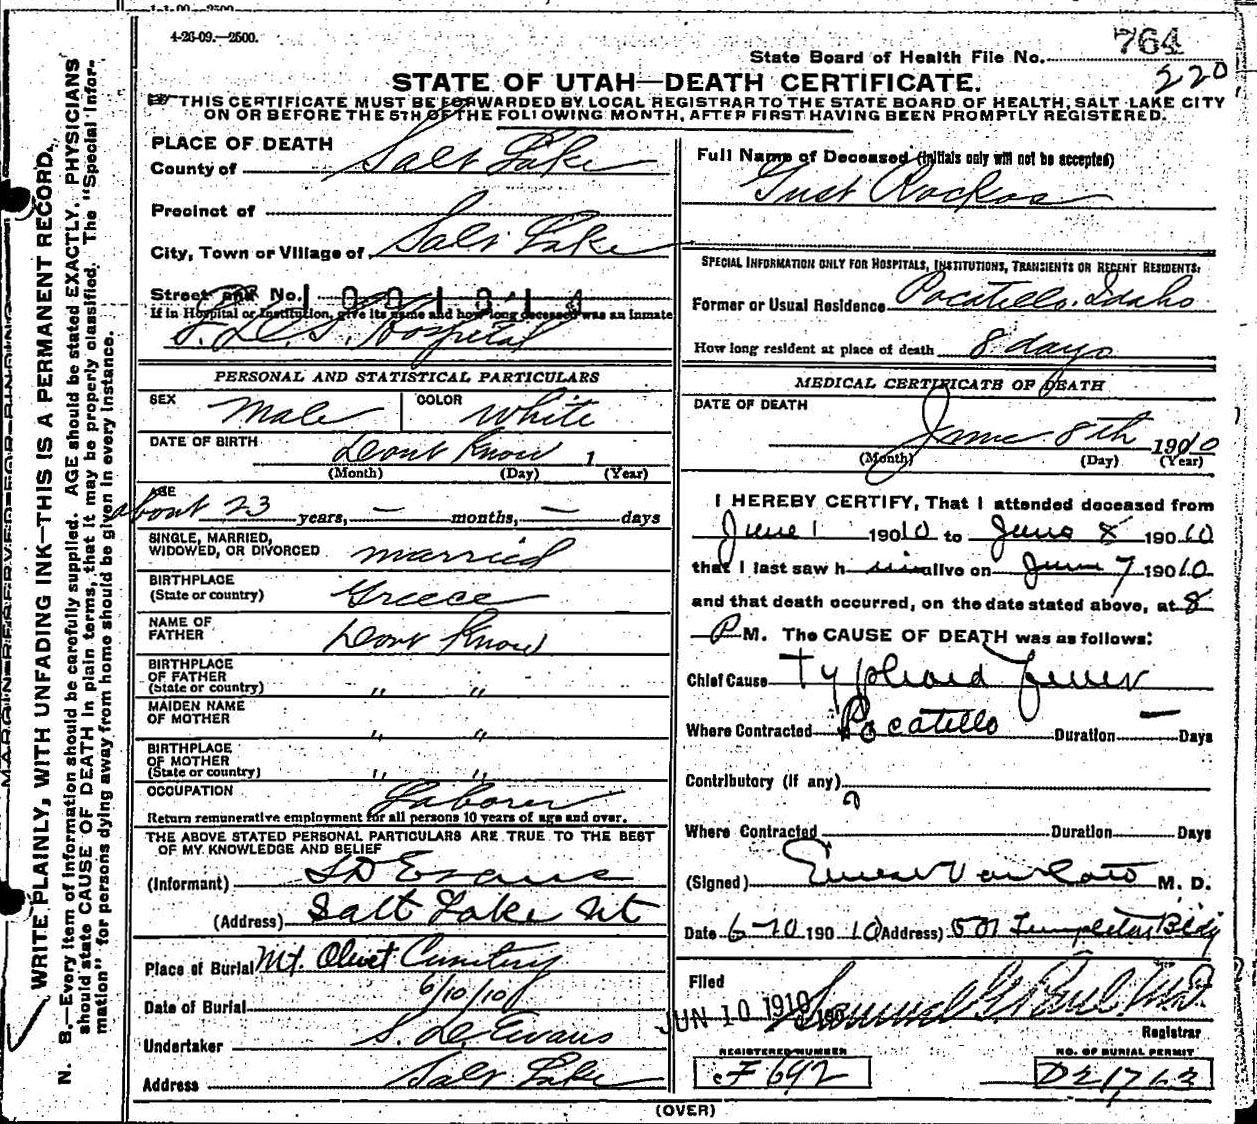 4-26-09.—2500.
State Board of Health File No. 764
220
STATE OF UTAH—DEATH CERTIFICATE.
THIS CERTIFICATE MUST BE FORWARDED BY LOCAL REGISTRAR TO THE STATE BOARD OF HEALTH, SALT LAKE CITY
ON OR BEFORE THE 5TH OF THE FOLLOWING MONTH, AFTER FIRST HAVING BEEN PROMPTLY REGISTERED.
MARGIN RESERVED FOR BINDING
WRITE PLAINLY, WITH UNFADING INK—THIS IS A PERMANENT RECORD.
N. B.—Every item of information should be carefully supplied. AGE should be stated EXACTLY. PHYSICIANS
should state CAUSE OF DEATH in plain terms, that it may be properly classified. The "Special Infor-
mation" for persons dying away from home should be given in every instance.
PLACE OF DEATH
County of Salt Lake
Precinct of
City, Town or Village of Salt Lake
Street and No.
If in Hospital or Institution, give its name and how long deceased was an inmate
L.D.S. Hospital
PERSONAL AND STATISTICAL PARTICULARS
SEX Male COLOR White
DATE OF BIRTH Dont Know 1
(Month) (Day) (Year)
AGE
about 23 years, — months, — days
SINGLE, MARRIED,
WIDOWED, OR DIVORCED married
BIRTHPLACE
(State or country) Greece
NAME OF
FATHER Dont Know
BIRTHPLACE
OF FATHER
(State or country) " "
MAIDEN NAME
OF MOTHER " "
BIRTHPLACE
OF MOTHER
(State or country) " "
OCCUPATION Laborer
Return remunerative employment for all persons 10 years of age and over.
THE ABOVE STATED PERSONAL PARTICULARS ARE TRUE TO THE BEST
OF MY KNOWLEDGE AND BELIEF
(Informant) S D Evans
(Address) Salt Lake Ut
Place of Burial Mt. Olivet Cemetery
Date of Burial 6/10/10
Undertaker S. D. Evans
Address Salt Lake
Full Name of Deceased (Initials only will not be accepted)
Gust
SPECIAL INFORMATION ONLY FOR HOSPITALS, INSTITUTIONS, TRANSIENTS OR RECENT RESIDENTS.
Former or Usual Residence Pocatello, Idaho
How long resident at place of death 8 days
MEDICAL CERTIFICATE OF DEATH
DATE OF DEATH
June 8th 1910
(Month) (Day) (Year)
I HEREBY CERTIFY, That I attended deceased from
June 1 190 10 to June 8 190 10
that I last saw h im alive on June 7 190 10
and that death occurred, on the date stated above, at 8
P M. The CAUSE OF DEATH was as follows:
Chief Cause Typhoid Fever
Where Contracted Pocatello Duration — Days
Contributory (if any)
Where Contracted Duration Days
(Signed) M. D.
Date 6-10 190 10 (Address) 501 Templeton Bldg
Filed
JUN 10 1910
Registrar
REGISTERED NUMBER
F 692
NO. OF BURIAL PERMIT
D 21763
(OVER)